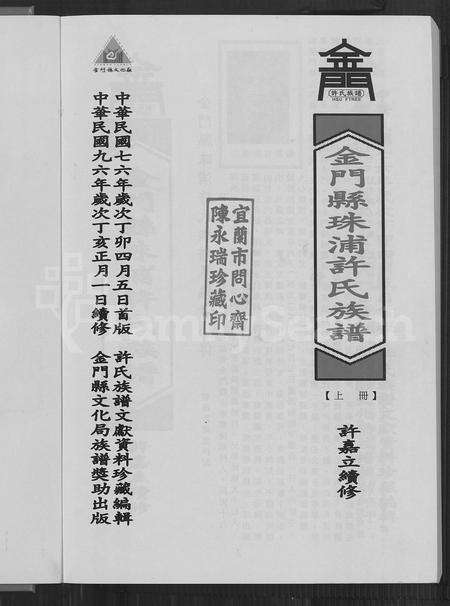 金門
許氏族譜
HSU FTREE
金門縣珠浦許氏族譜
【上冊】
許嘉立續修
宜蘭市問心齋
陳永瑞珍藏印
金門縣文化局
中華民國七六年歲次丁卯四月五日首版 許氏族譜文獻資料珍藏編輯
中華民國九六年歲次丁亥正月一日續修 金門縣文化局族譜獎助出版
FamilySearch